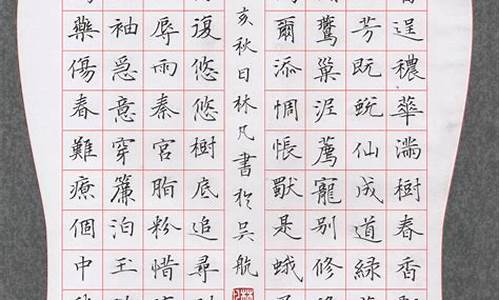 逞穠華滿樹春香
芳既蛻仙成道綠
鶯巢涅薦寵別修
爾添惆悵獸是蛾
亥秋日林凡書於吳航
復悠悠樹底追尋
辱雨秦宮脂粉惜
袖急意穿簾泊玉
藥傷春難療個中